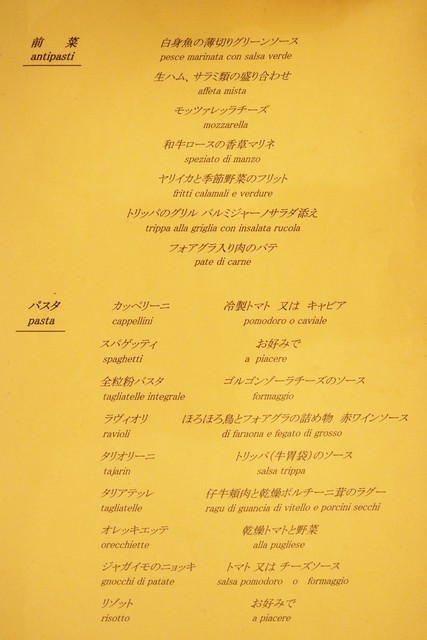 前 菜 白身魚の薄切りグリーンソース
antipasti pesce marinata con salsa verde
生ハム、サラミ類の盛り合わせ
affeta mista
モッツァレッラチーズ
mozzarella
和牛ロースの香草マリネ
speziato di manzo
ヤリイカと季節野菜のフリット
fritti calamali e verdure
トリッパのグリル パルミジャーノサラダ添え
trippa alla griglia con insalata rucola
フォアグラ入り肉のパテ
pate di carne
パスタ カッペリーニ 冷製トマト 又は キャビア
pasta cappellini pomodoro o caviale
スパゲッティ お好みで
spaghetti a piacere
全粒粉パスタ ゴルゴンゾーラチーズのソース
tagliatelle integrale formaggio
ラヴィオリ ほろほろ鳥とフォアグラの詰め物 赤ワインソース
ravioli di faraona e fegato di grosso
タリオリーニ トリッパ(牛胃袋)のソース
tajarin salsa trippa
タリアテッレ 仔牛頬肉と乾燥ポルチーニ茸のラグー
tagliatelle ragu di guancia di vitello e porcini secchi
オレッキエッテ 乾燥トマトと野菜
orecchiette alla pugliese
ジャガイモのニョッキ トマト 又は チーズソース
gnocchi di patate salsa pomodoro o formaggio
リゾット お好みで
risotto a piacere